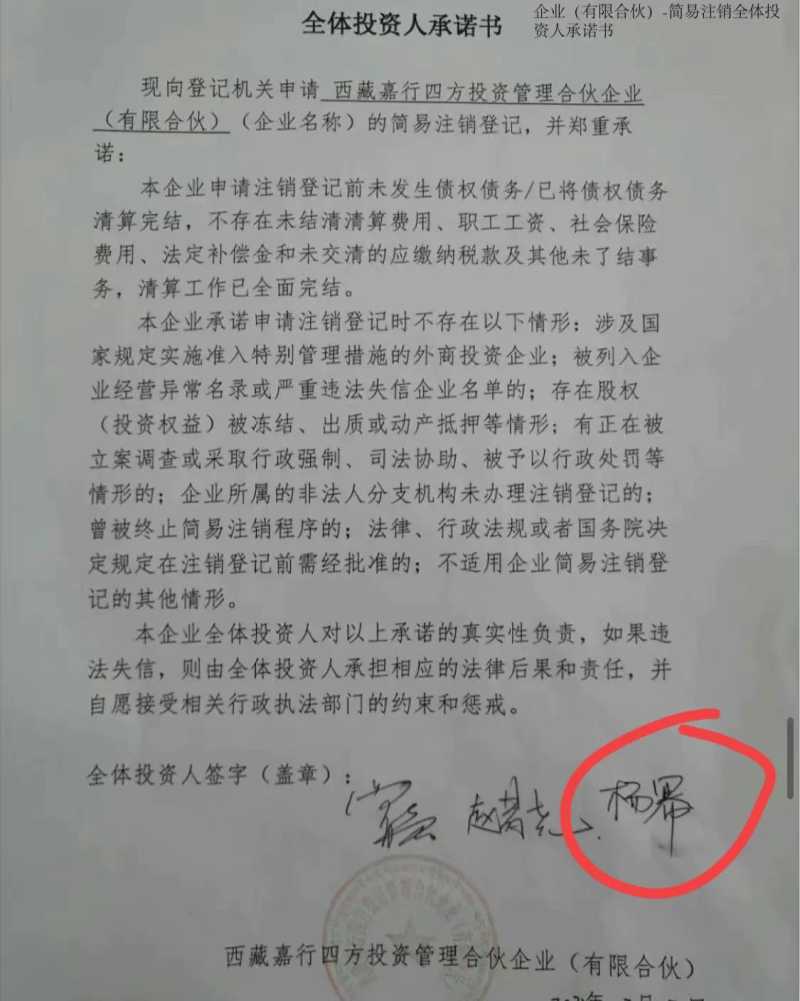 全体投资人承诺书
企业（有限合伙）-简易注销全体投
资人承诺书
现向登记机关申请 西藏嘉行四方投资管理合伙企业
（有限合伙）（企业名称）的简易注销登记，并郑重承
诺：
本企业申请注销登记前未发生债权债务/已将债权债务
清算完结，不存在未结清清算费用、职工工资、社会保险
费用、法定补偿金和未交清的应缴纳税款及其他未了结事
务，清算工作已全面完结。
本企业承诺申请注销登记时不存在以下情形：涉及国
家规定实施准入特别管理措施的外商投资企业；被列入企
业经营异常名录或严重违法失信企业名单的；存在股权
（投资权益）被冻结、出质或动产抵押等情形；有正在被
立案调查或采取行政强制、司法协助、被予以行政处罚等
情形的；企业所属的非法人分支机构未办理注销登记的；
曾被终止简易注销程序的；法律、行政法规或者国务院决
定规定在注销登记前需经批准的；不适用企业简易注销登
记的其他情形。
本企业全体投资人对以上承诺的真实性负责，如果违
法失信，则由全体投资人承担相应的法律后果和责任，并
自愿接受相关行政执法部门的约束和惩戒。
全体投资人签字（盖章）：
杨幂
西藏嘉行四方投资管理合伙企业（有限合伙）